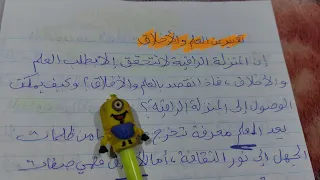 تعبير عن العلم والأخلاق
إن المنزلة الراقية لا تتحقق إلا بطلب العلم
والأخلاق، فماذا نقصد بالعلم والأخلاق؟ وكيف يمكن
الوصول إلى المنزلة الراقية؟
يعد العلم معرفة تخرج من ظلمات
الجهل إلى نور الثقافة، أما فهي صفات